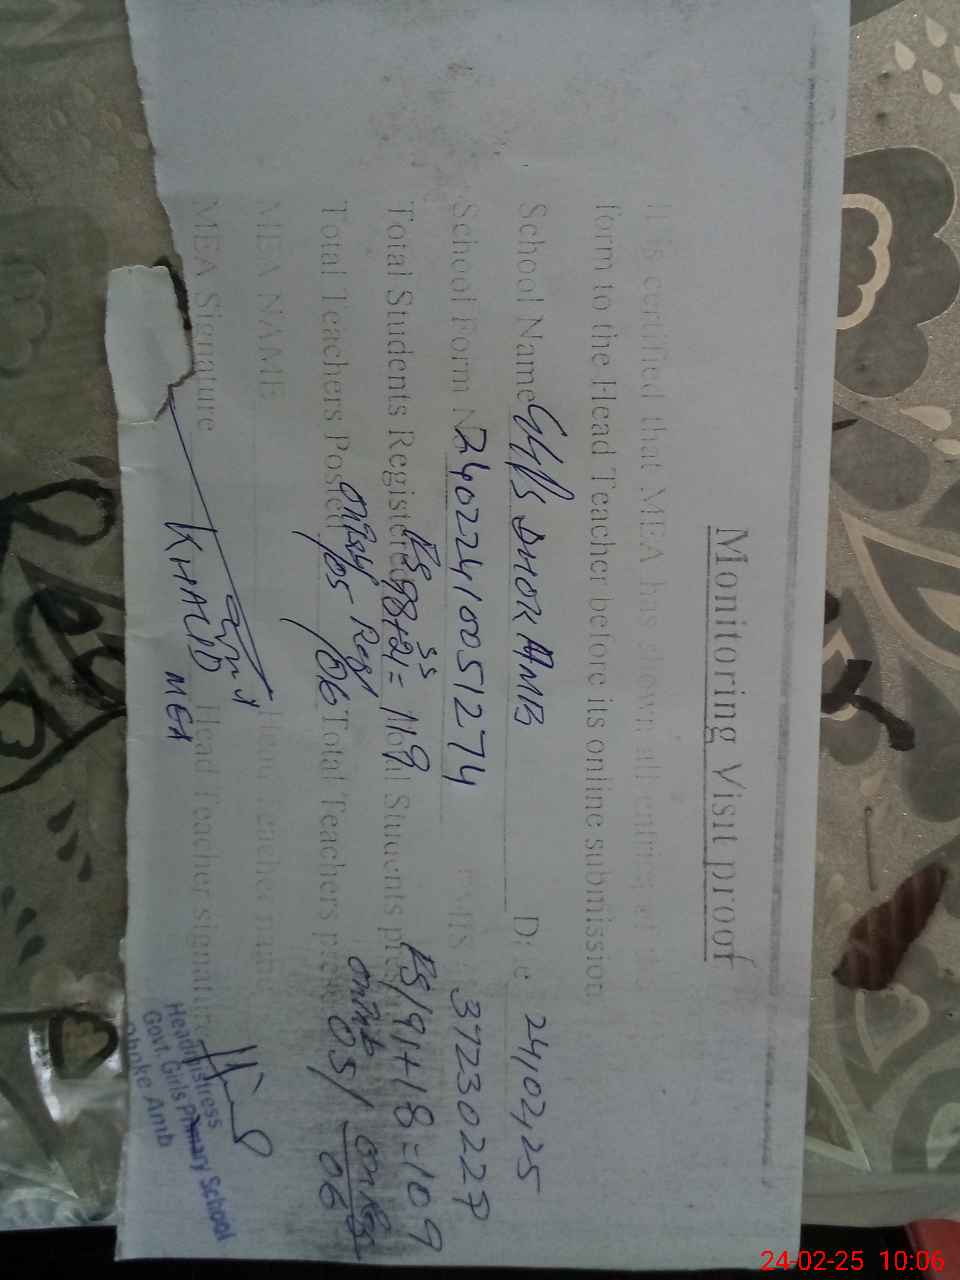 Monitoring Visit proof
It is certified that MEA has shown all entries of the
form to the Head Teacher before its online submission
School Name GGPS DHOK AMB Date 24/02/25
School Form No 24022410051274 EMIS 37230227
Total Students Registered PS 98+21= 119 Total Students present PS/91+18=109
Total Teachers Posted 05 06 Total Teachers present 05/ 06
MEA NAME Head Teacher name
MEA Signature KHALID MEA Head Teacher signature
Headmistress
Govt. Girls Primary School
Dhoke Amb
24-02-25 10:06